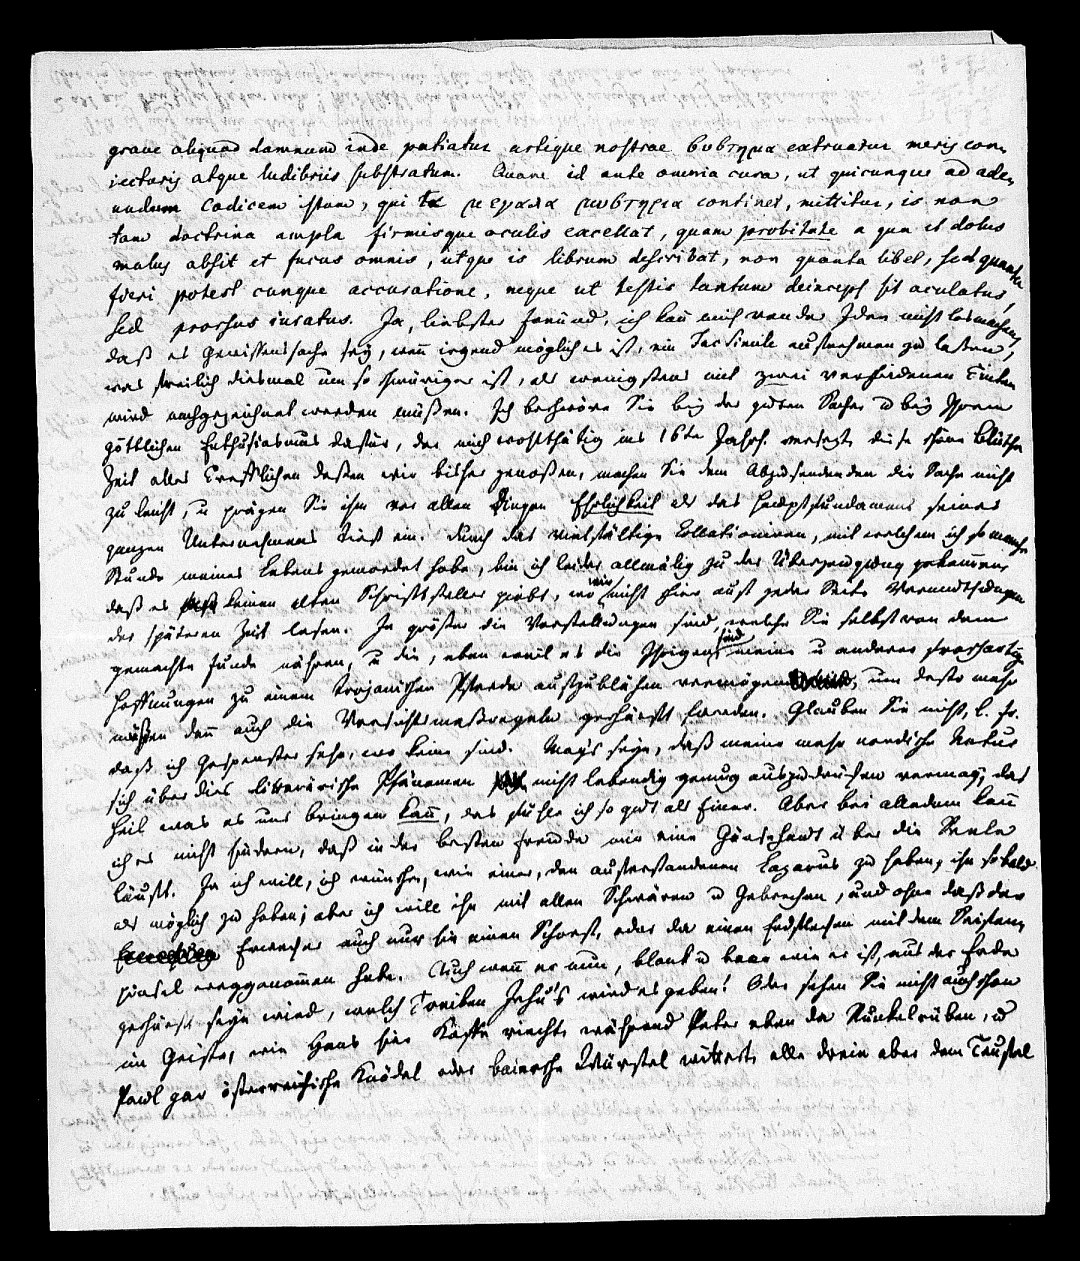 grave aliquod damnum inde patiatur artique nostrae συστημα extruatur meris con-
iecturis atque ludibriis substratum. Quare id ante omnia cura, ut quicunque ad ade-
undum Codicem istum, qui τα μεγαλα μυστηρια continet, mittitur, is non
tam doctrina ampla firmisque oculis excellat, quam probitate a qua et dolus
malus absit et fucus omnis, utque is librum describat, non quanta libet, sed quanta
fieri potest cunque accuratione, neque ut testis tantum deinceps sit oculatus,
sed prorsus iuratus. Ja, liebster Freund, ich kann mich von der Idee nicht losmachen,
daß es Gewissenssache sey, wenn irgend möglich es ist, ein Facsimile aufnehmen zu lassen,
was freilich diesmal um so schwieriger ist, als wenigstens mit zwei verschiedenen Tinten
wird nachgezeichnet werden müßen. Ich beschwöre Sie bey der guten Sache u bey Ihrem
göttlichen Enthusiasmus dafür, der mich wohlthätig ins 16te Jahrh. versezt, diese schöne Blüthen
Zeit alles Trefflichen deßen wir bisher genoßen, machen Sie dem Abzusendenden die Sache nicht
zu leicht, u prägen Sie ihm vor allen Dingen Ehrlichkeit als das Hauptfundament seines
ganzen Unternehmens tief ein. Durch das vielfältige Collationiren, mit welchem ich so manche
Stunde meines Lebens gemordet habe, bin ich leider allmälig zu der Überzeugung gekommen
daß es keinen alten Schriftsteller giebt, wo wir nicht hier auf jeder Seite Vermuthungen
der späteren Zeit lesen. Je größer die Vorstellungen sind, welche Sie selbst von dem
gemachten Funde nähren, u die, eben weil es die Ihrigen sind meine u anderer
Hoffnungen zu einem trojanischen Pferde aufzublähen vermögen, um desto mehr
müßen denn auch die Vorsichtsmaßregeln geschärft werden. Glauben Sie nicht, l. Fr.
daß ich Gespenster sehe, wo keine sind. Mag's seyn, daß meine mehr nordische Natur
sich über dies litterärische Phänomen nicht lebendig genug auszudrücken vermag, das
Heil was es uns bringen kann, das fühle ich so gut als Einer. Aber bei alledem kann
ich es nicht hindern, daß in der besten Freude mir eine Gänsehaut über die Seele
läuft. Ja ich will, ich wünsche, wie einer, den auferstandenen Lazarus zu haben, ihn so bald
als möglich zu haben; aber ich will ihn mit allen Schwären u Gebrechen, und ohne daß der
Erwecker auch nur hie einen Schorf, oder da einen Erdflecken mit dem
pinsel weggenommen habe. Auch wenn er nun, blank u baar wie er ist, aus der Erde
seyn wird, welch Treiben Jehu's wird es geben! Oder sehen Sie nicht auch schon
im Geiste, wie Hans hier Käse riecht, während Peter eben da Runkelrüben, u
Paul gar österreichische Knödel oder baiersche Würstel wittert, alle drei aber dem Teufel